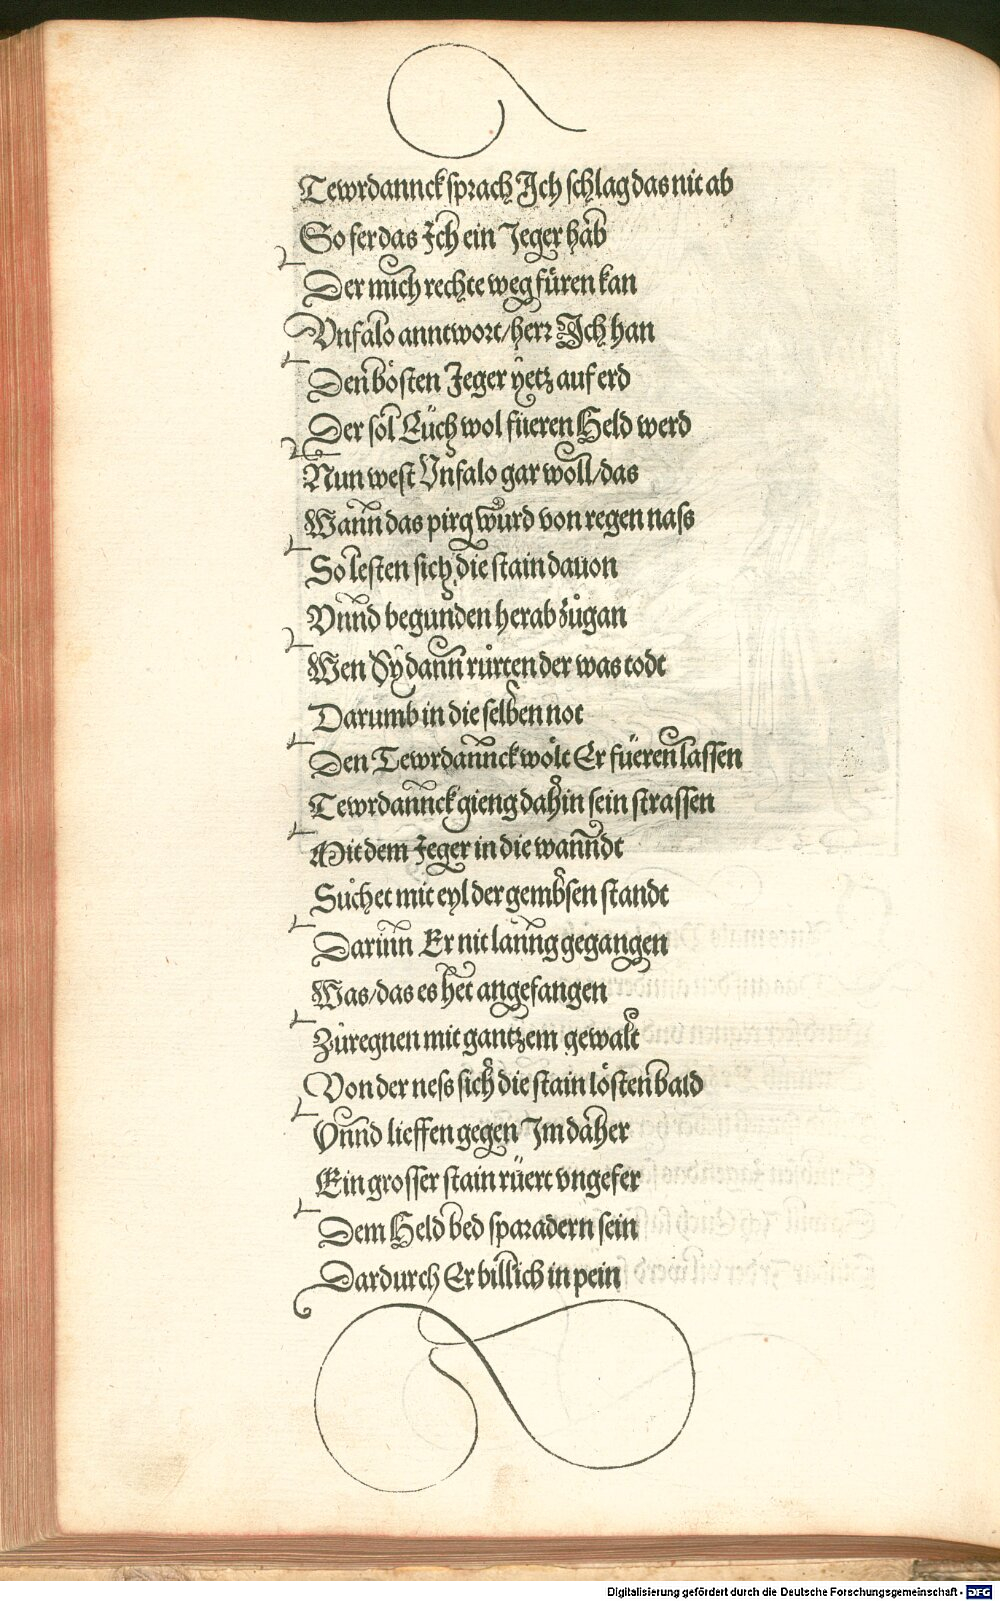 Tewrdannck sprach Ich schlag das nit ab
So fer das Ich ein Jeger hab
Der mich rechte weg füren kan
Vnfalo anntwort/herr Ich han
Den bösten Jeger yetz auf erd
Der sol Eüch wol füeren Held werd
Nun west Vnfalo gar woll/das
Wann das pirg wurd von regen nass
So lesten sich die stain dauon
Vnnd begunden herab zůgan
Wen Sy dann růrten der was todt
Darumb in die selben not
Den Tewrdannck wolt Er füeren lassen
Tewrdannck gieng dahin sein strassen
Mit dem Jeger in die wanndt
Sůchet mit eyl der gembsen standt
Darinn Er nit lanng gegangen
Was/das es het angefangen
Zůregnen mit gantzem gewalt
Von der ness sich die stain lösten bald
Vnnd lieffen gegen Im daher
Ein grosser stain rüert vngefer
Dem Held bed sparadern sein
Dardurch Er billich in pein
Digitalisierung gefördert durch die Deutsche Forschungsgemeinschaft - DFG